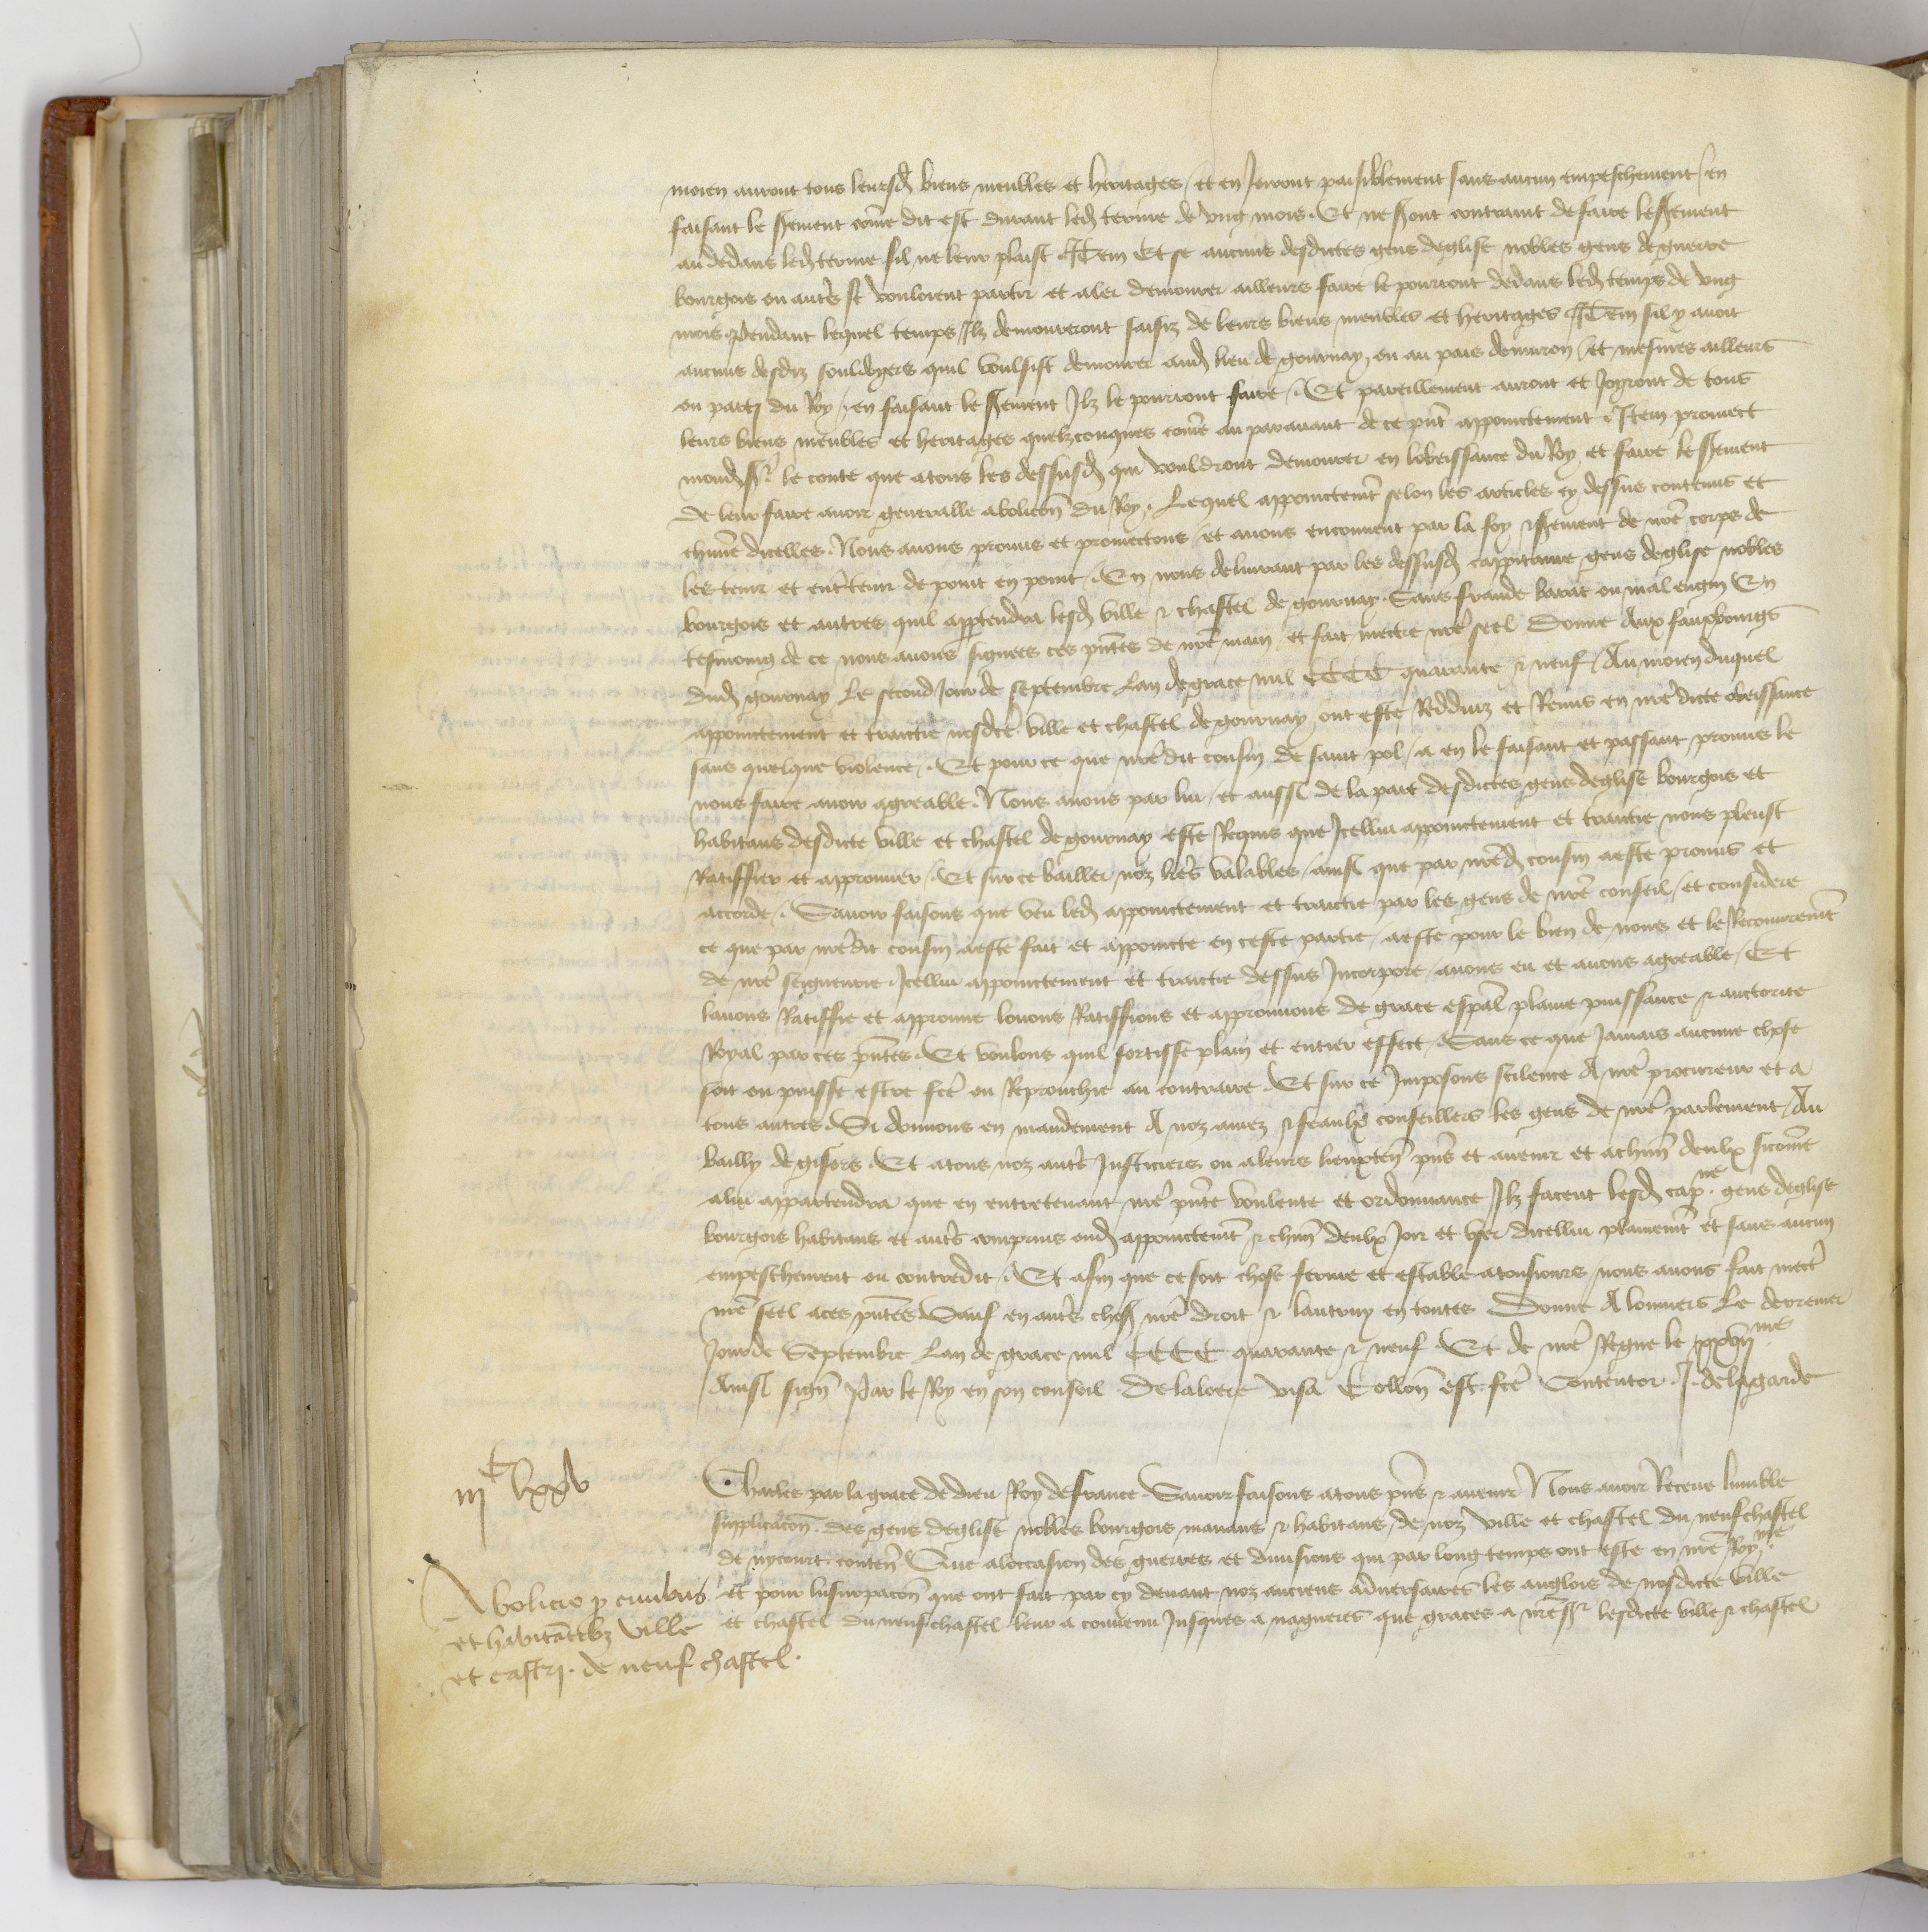 moien auront tous leursd biens meubles et heritages / et en Joiront paisiblement sans aucun empeschement / en
faisant le sement come dit est durant led terme de ung mois. Et ne sont contraint de faire le sement
au dedans led terme sil ne leur plaist Item Et se aucuns desdictes gens deglise nobles gens de guerre
bourgois ou autrs se vouloient partir et aler demourer ailleurs faire le pourront dedans led temps de ung
mois. pendant lequel temps Ilz demourront saisiz de leurs biens meubles et heritages Item sil y avoit
aucuns desdiz souldoyers quil voulsist demourer aud lieu de gournay, ou au pais denuiron / et mesmes ailleurs
ou parti du Roy / en faisant le sement Ilz le pourront faire /. Et pareillement auront et Joyront de tous
leurs biens meubles et heritages quelzconques come au parauant de ce pnt appointement. Item promect
mond sr le conte que atous les dessusd qui vouldront demourer en lobeissance du Roy, et faire le sement
de leur faire auoir generalle abolicon du Roy. Lequel appoinctemt selon les articles cy dessus contenus et
chune dicelles. Nous auons promis et promectons / et auons enconuent par la foy & sement de nre corps de
les tenir et entrtenir de point en point /. En nous deliurant par les dessusd cappitaine gens deglise nobles
bourgois et autres quil appartendra lesd ville & chastel de gournay. Sans fraude barat ou mal engin En
tesmoing de ce nous auons signees ces pntes de nre main / et fait mectre nre seel Donne Aux fauxbourgs
dud gournay Le second Jour de septembre Lan de grace mil CCCC quarante & neuf / Au moien duquel
appoinctement et traictie nosdce ville et chastel de gournay ont este Redduiz et Remis en nre dicte obeissance
sans quelque violence /. Et pour ce que nredit cousin de saint pol / a en le faisant et passant promis le
nous faire auoir agreable. Nous auons par lui / et aussi de la part desdictes gens deglise bourgois et
habitans desdicte ville et chastel de gournay este Requis que Icellui appoinctement et traictie nous pleust
Ratiffier et approuuer /. Et sur ce bailler noz lres valables / ainsi que par nred cousin a este promis et
accorde /. Sauoir faisons que veu led appoinctement et traictie par les gens de nre conseil / et considere
ce que par nredit cousin a este fait et appoincte en ceste partie / a este pour le bien de nous et le Recouuremt
de nre seigneurie. Icellui appoinctement et traictie dessus Incorpore / auons eu et auons agreable / Et
lauons Ratiffie et approuue louons Ratiffions et approuuons de grace espal plaine puissance & auctorite
Royal par ces pntes. Et voulons quil sortisse plain et entier effect /. Sans ce que Jamais aucune chose
soit ou puisse estre fce ou Reprouchie au contraire. Et sur ce Imposons scilence A nre procureur et a
tous autres. Si donnons en mandement A noz amez & feaulx conseillers les gens de nre parlement / Au
bailly de gisors. Et atous noz autrs Justiciers ou aleurs lieuxten pns et auenir et achun deulx sicome
alui appartendra que en entretenant nre pnte voulente et ordonnance Ilz facent lesd cap ne. gens deglise
bourgois habitans et autrs comprins oud appoinctemt & chun deulx Joir et vser dicellui plainemt et sans aucun
empeschement ou contredit /. Et afin que ce soit chose ferme et estable atousiours / nous auons fait mectr
nre seel aces pntes Sauf en autrs choss nre droit & lautruy en toutes Donne A louuiers Le derrenier
Jour de Septembre Lan de grace mil CCCC quarante & neuf Et de nre Regne le xxvii me
Ainsi sign Par le Roy en son conseil De laloere Visa Collon est fce Contentor. J. delagarde
iii C lxxv
Charles par la grace de dieu Roy de france. Sauoir faisons atous pns & auenir Nous auoir Receue lumble
supplicacon. des gens deglise nobles bourgois manans & habitans / de noz ville et chastel du neufchastel
de nycourt. conten Que aloccasion des guerres et diuisions qui par long temps ont este en nre Roy me
et pour lusurpacon que ont fait par cy deuant noz anciens aduersaires les anglois de nosdicte ville
et chastel du neufchastel leur a conuenu Jusques a nagueres que graces a nre sr lesdicte ville & chastel
Abolicio p ciuibus
et habitatibz ville
et castri. de neuf chastel.